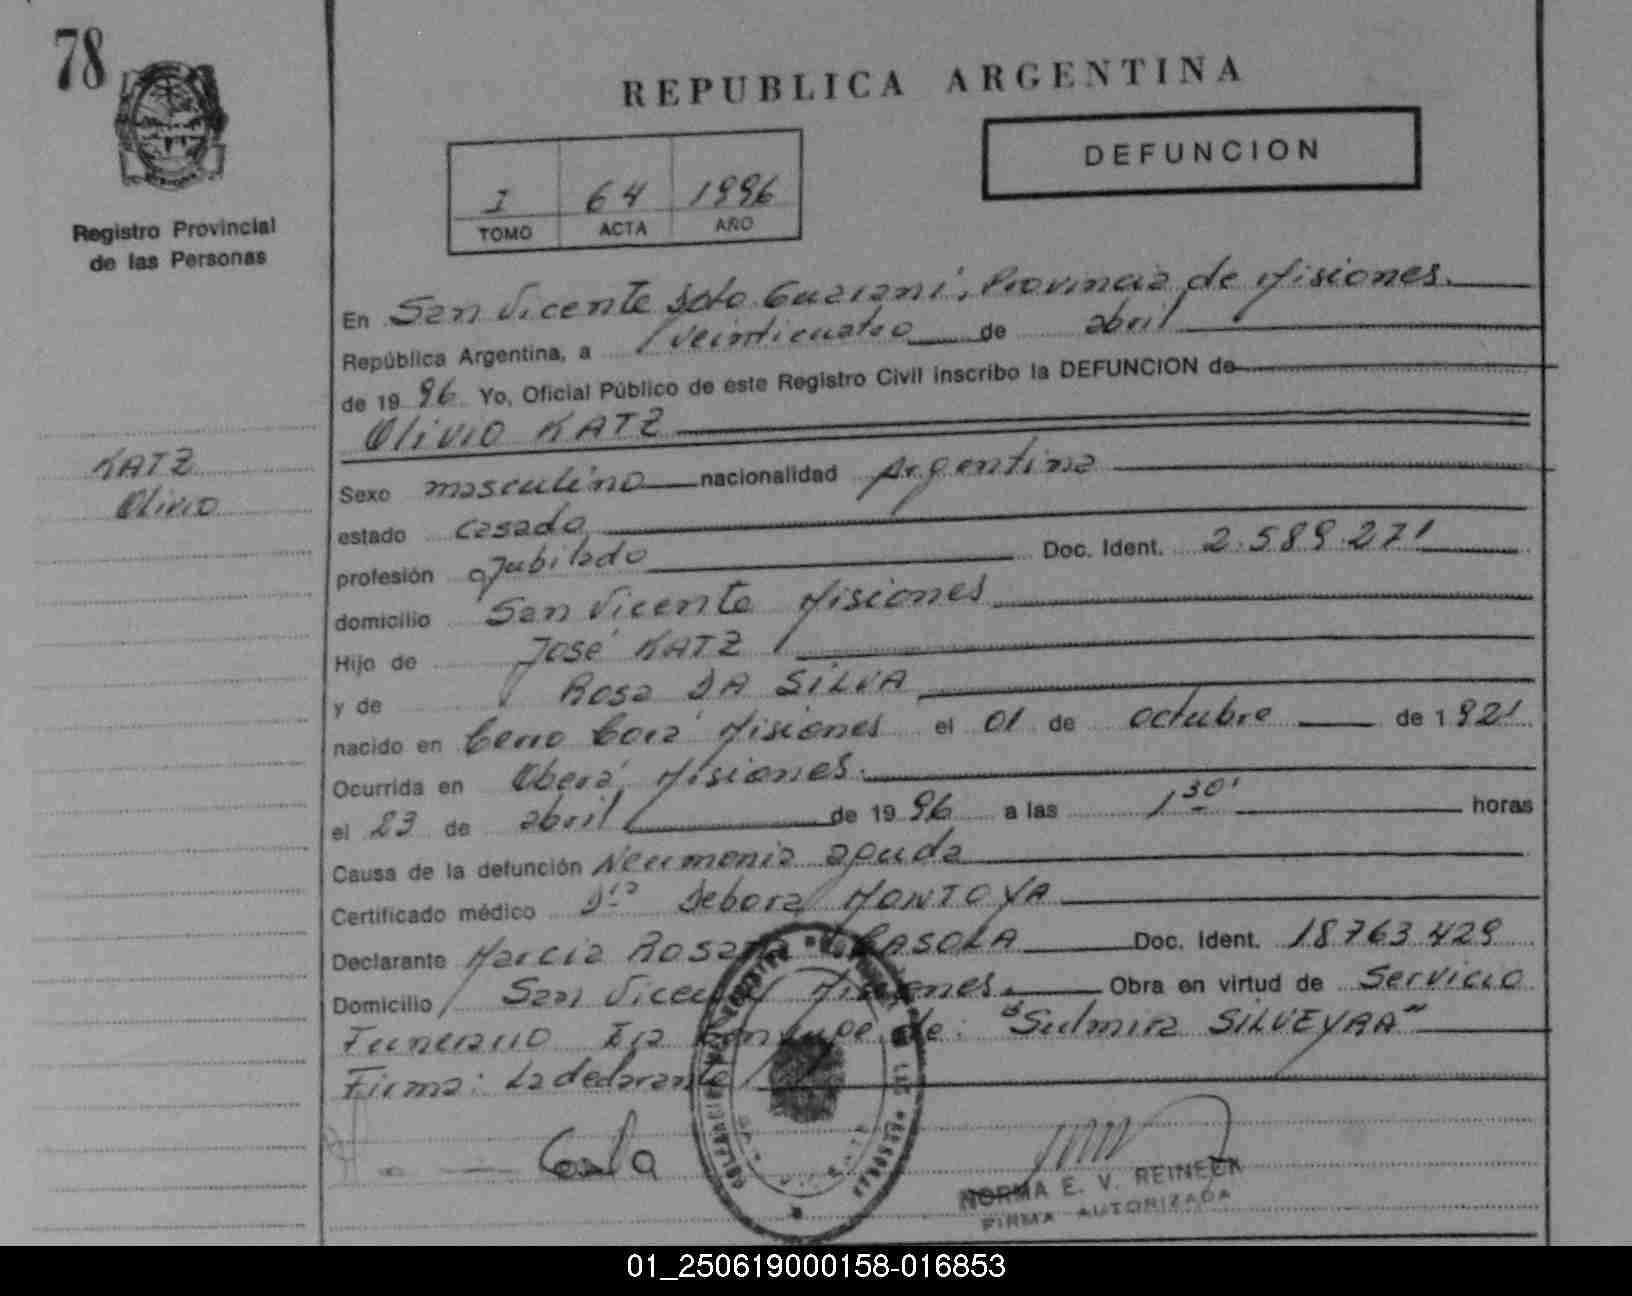 78
REPUBLICA ARGENTINA
DEFUNCION
I 64 1996
TOMO ACTA AÑO
Registro Provincial
de las Personas
En San Vicente Dpto. Guaraní, Provincia de Misiones.
República Argentina, a veinticuatro de abril
de 1996 Yo, Oficial Público de este Registro Civil inscribo la DEFUNCION de
Olivio KATZ
KATZ
Olivio
Sexo masculino nacionalidad Argentina
estado casado
profesión Jubilado Doc. Ident. 2.589.271
domicilio San Vicente Misiones
Hijo de José KATZ
y de Rosa DA SILVA
nacido en Cerro Corá Misiones el 01 de octubre de 1921
Ocurrida en Oberá, Misiones.
el 23 de abril de 1996 a las 1 30' horas
Causa de la defunción Neumonia aguda
Certificado médico Dra Debora MONTOYA
Declarante Marcia Rosana CASOLA Doc. Ident. 18763.429
Domicilio San Vicente Misiones. Obra en virtud de Servicio
Funerario Era conyuge de: "Sulmira SILVEYRA"
Firma: La declarante
NORMA E. V. REINECK
FIRMA AUTORIZADA
01_250619000158-016853